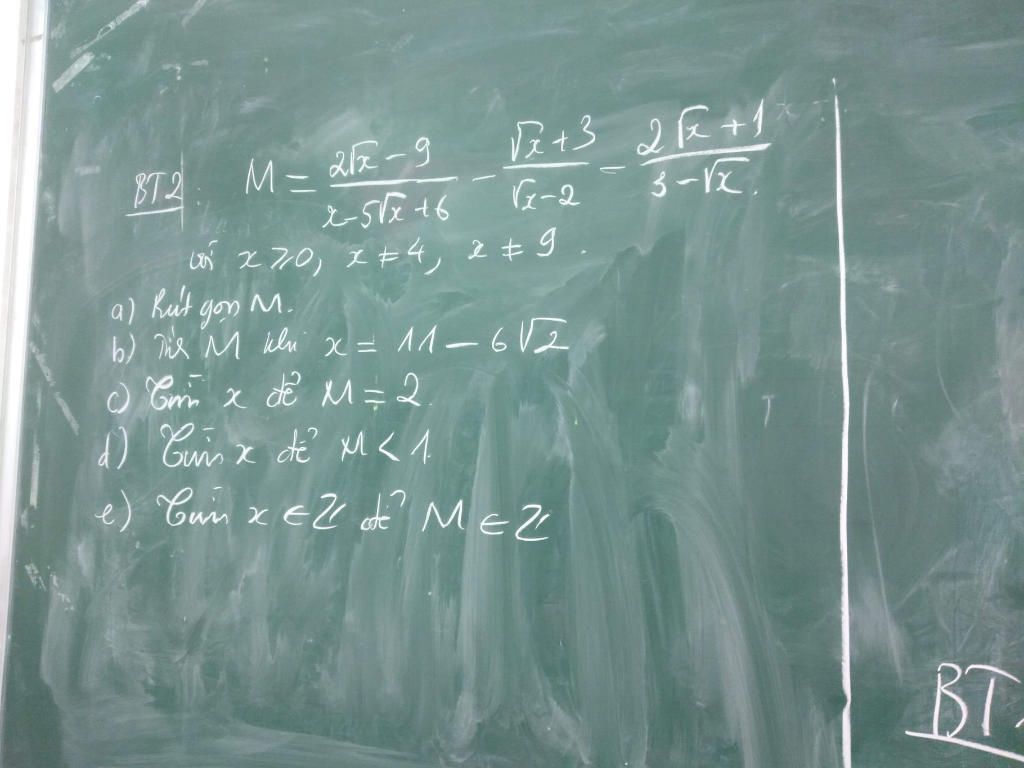 BT2: M = (2√x − 9)/(x − 5√x + 6) − (√x + 3)/(√x − 2) − (2√x + 1)/(3 − √x).
với x ≥ 0, x ≠ 4, x ≠ 9.
a) Rút gọn M.
b) Tính M khi x = 11 − 6√2
c) Tìm x để M = 2.
d) Tìm x để M < 1.
e) Tìm x ∈ Z để M ∈ Z
BT